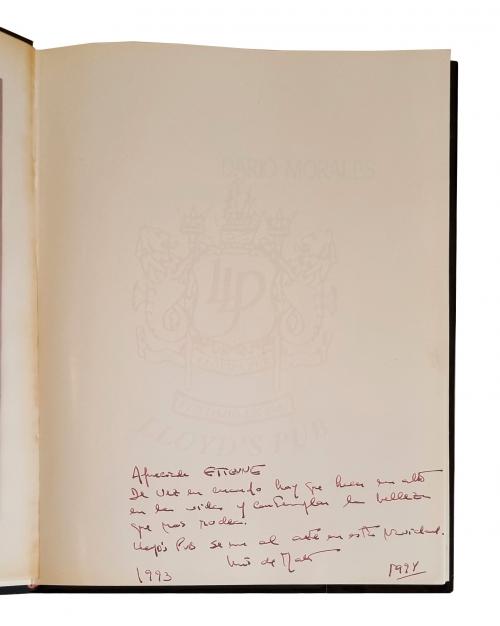 DARIO MORALES
LLP
LLOYD'S PUB
ETIENNE
De vez en cuando hay que hacer un alto
en la vida y contemplar la belleza
que nos rodea.
Lloyd's Pub se une al arte en esta navidad.
1993 1994